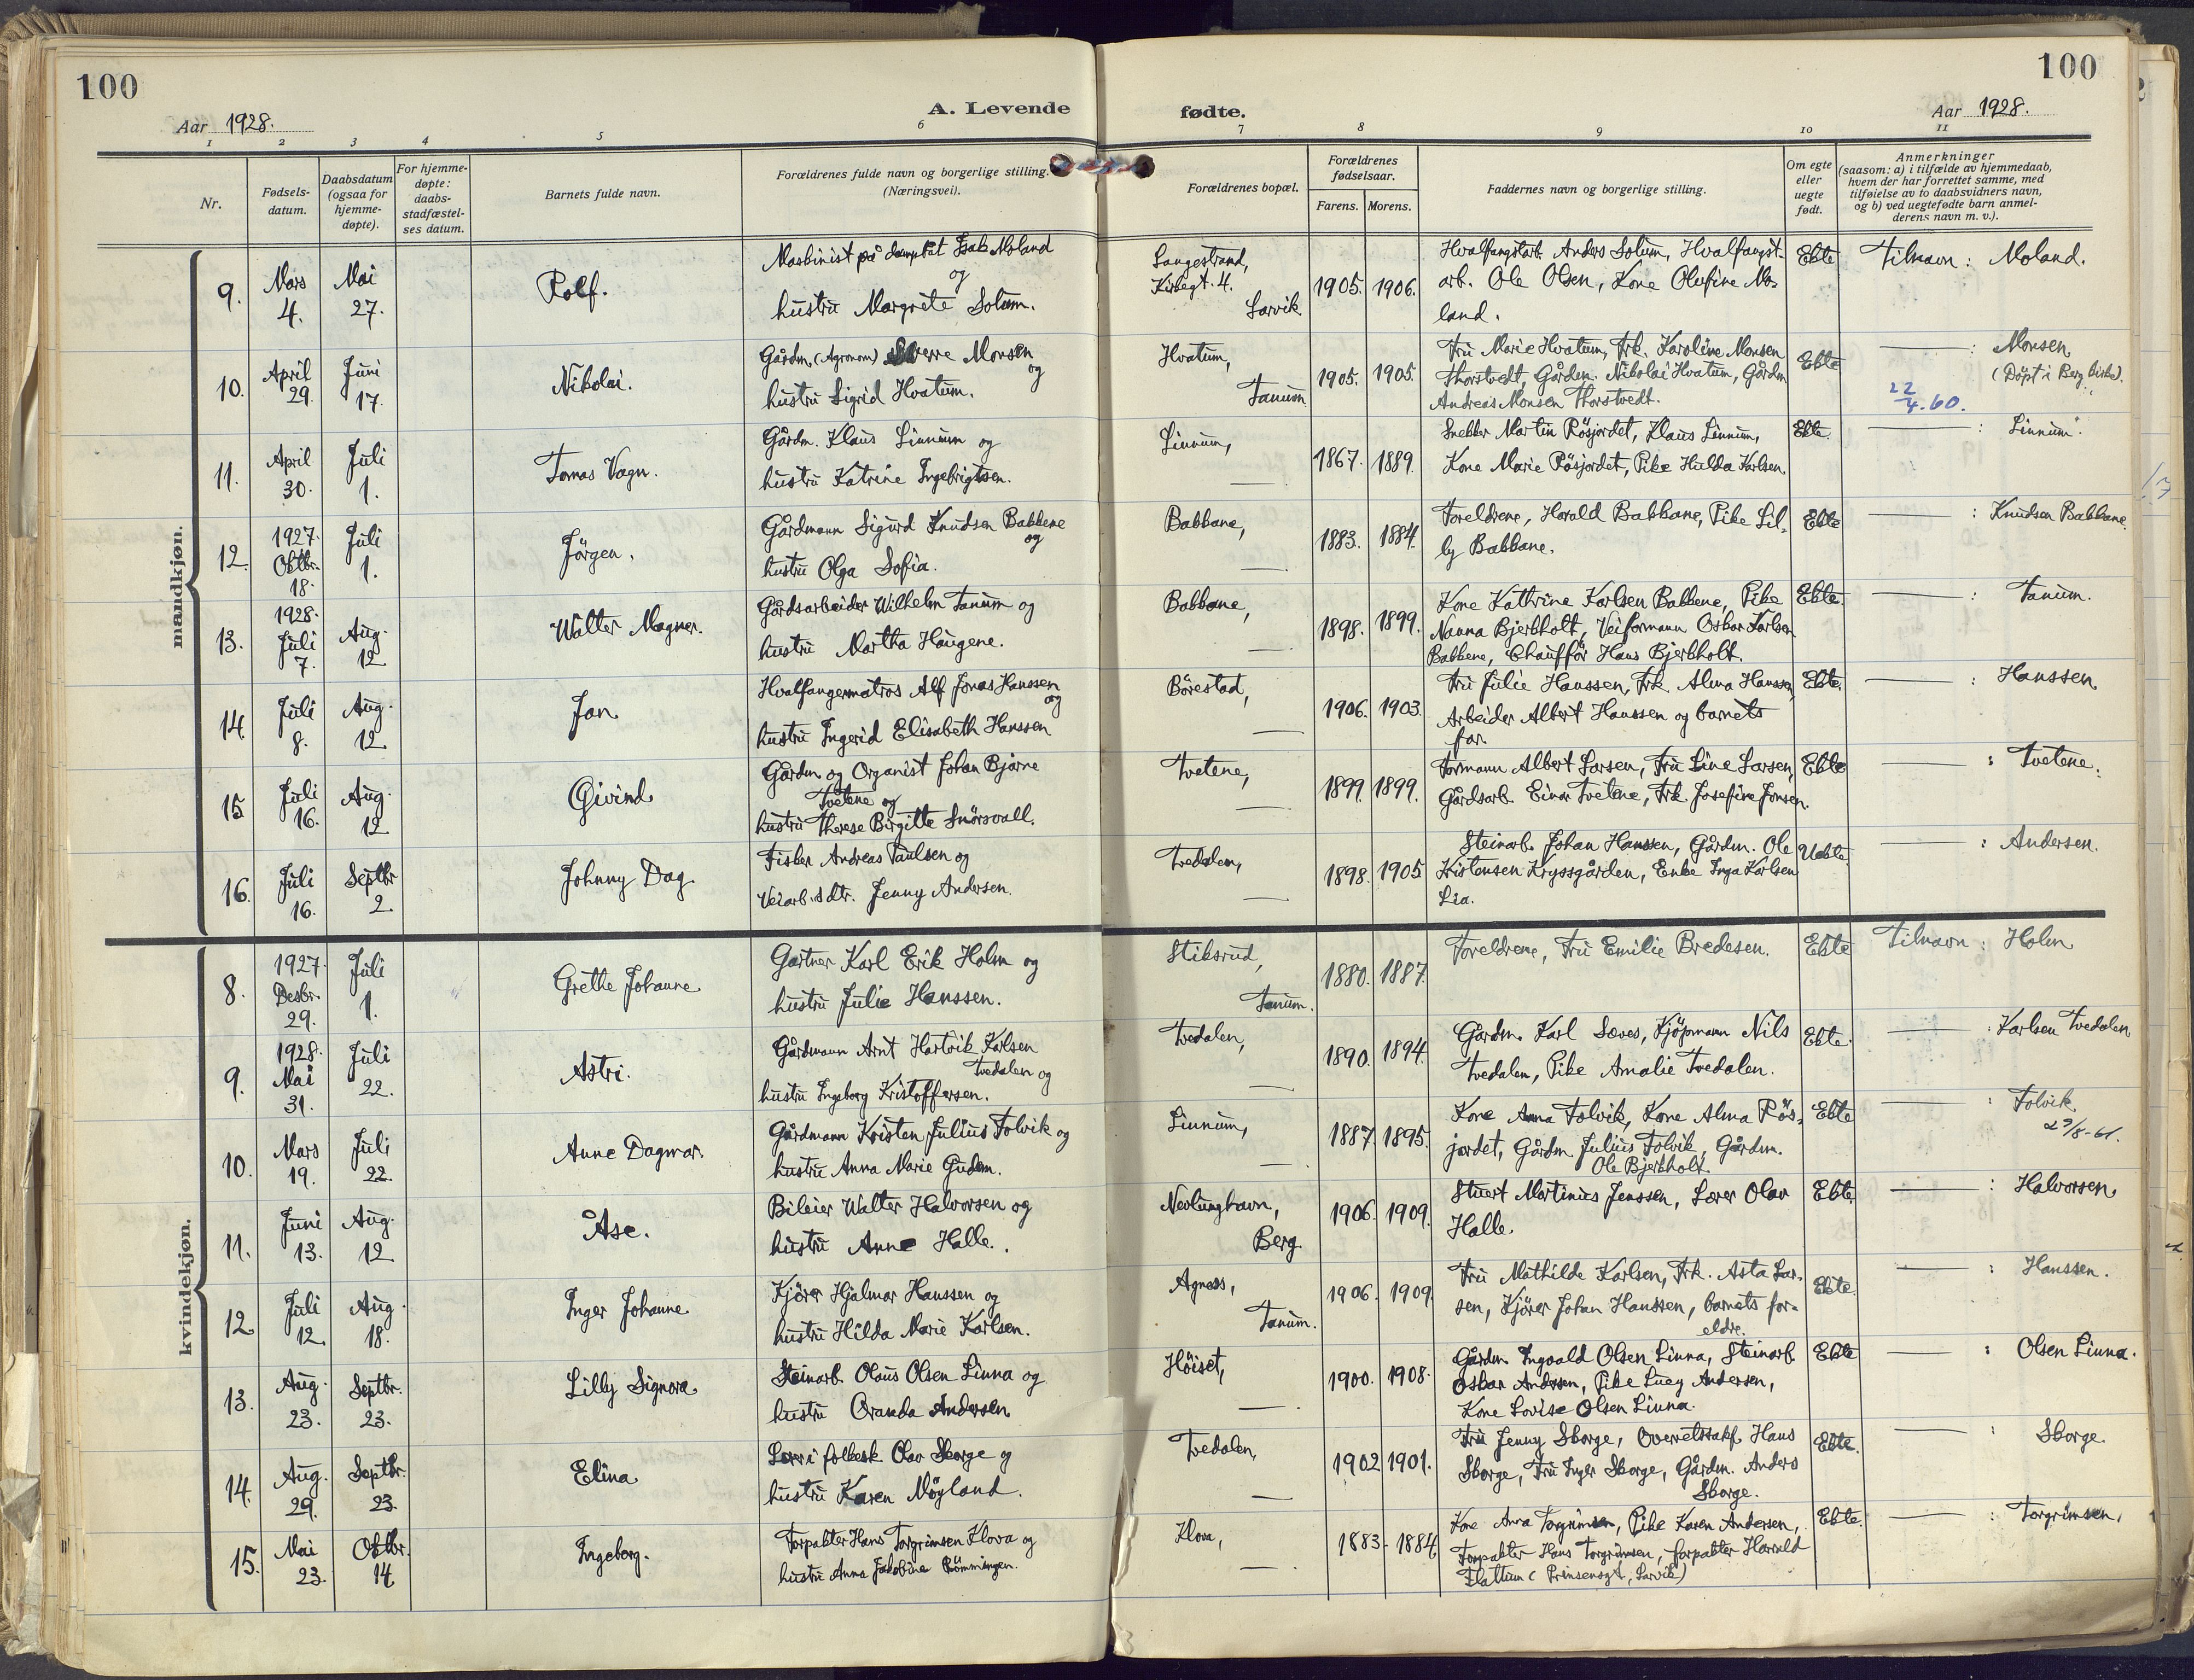 100
100
Aar 1928.
A. Levende
fødte.
Aar 1928.
1 2 3 4 5 6 7 8 9 10 11
Nr.
Fødsels-
datum.
Daabsdatum
(ogsaa for
hjemme-
døpte).
For hjemme-
døpte:
daabs-
stadfæstel-
ses datum.
Barnets fulde navn.
Forældrenes fulde navn og borgerlige stilling.
(Næringsvei).
Forældrenes bopæl.
Forældrenes
fødselsaar.
Farens. Morens.
Faddernes navn og borgerlige stilling.
Om egte
eller
uegte
født.
Anmerkninger
(saasom: a) i tilfælde av hjemmedaab,
hvem der har forrettet samme, med
tilføielse av to daabsvidners navn,
og b) ved uegtefødte barn anmel-
derens navn m. v.).
mandkjøn.
9. Mars 4. Mai 27. Rolf.
Maskinist på dampbåt Isak Moland
og
hustru Margrete Solum.
Langestrand,
Kirkegt. 4.
Larvik
1905. 1906.
Hvalfangstarb. Anders Solum, Hvalfangst-
arb. Ole Olsen, Kone Olufine Mo-
land.
Ekte
Tilnavn: Moland.
10. April 29. Juni 17. Nikolai.
Gårdm. (Agronom) Sverre Monsen
og
hustru Sigrid Hvatum.
Hvatum,
Tanum.
1905. 1905.
Fru Marie Hvatum, Frk. Karoline Monsen
Thorstvedt, Gårdm. Nikolai Hvatum, Gårdm
Andreas Monsen Thorstvedt.
Ekte
—: Monsen
(Döpt i Berg kirke).
22/4.60.
11. April 30. Juli 1. Tomas Vagn.
Gårdm. Klaus Linnum og
hustru Katrine Ingebrigtsen.
Linnum,
—
1867. 1889.
Snekker Martin Rösjordet, Klaus Linnum,
Kone Marie Rösjordet, Pike Hulda Karlsen.
Ekte.
—: Linnum.
12. 1927. Oktbr. 18. Juli 1. Jörgen.
Gårdmann Sigurd Knudsen Bakkene
og
hustru Olga Sofia.
Bakkane,
—
1883. 1884.
Foreldrene, Harald Bakkane, Pike Lil-
ly Bakkane.
Ekte
—: Knudsen Bakkane.
13. 1928. Juli 7. Aug. 12. Walter Magner.
Gårdsarbeider Wilhelm Tanum og
hustru Martha Haugene.
Bakkane,
—
1898. 1899.
Kone Kathrine Karlsen Bakkene, Pike
Nanna Bjerkholt, Veiformann Oskar Karlsen
Bakkene, Chauffför Hans Bjerkholt.
Ekte.
—: Tanum.
14. Juli 8. Aug. 12. Jan
Hvalfangermatros Alf Jonas Hanssen
og
hustru Ingerid Elisabeth Hanssen
Börestad,
—
1906. 1903.
Fru Julie Hanssen, Frk. Alma Hanssen,
Arbeider Albert Hanssen og barnets
far.
Ekte.
—: Hanssen.
15 Juli 16. Aug. 12. Eivind
Gårdm. og Organist Johan Bjarne
Tvetene og
hustru Therese Birgitte Snörsvall.
Tvetene,
—
1899. 1899.
Formann Albert Larsen, Fru Line Larsen,
Gårdsarb. Einar Tvetene, Frk. Josefine Jonsen.
Ekte
—: Tvetene.
16. Juli 16. Septbr 2. Johnny Dag
Fisker Andreas Paulsen og
Veiarb.s dtr. Jenny Andersen.
Tvedalen,
—
1898. 1905
Steinarb. Johan Hanssen, Gårdm. Ole
Kristensen Kryssgården, Enke Inga Karlsen
Lia.
Uekte
—: Andersen.
kvindekjøn.
8. 1927. Desbr. 29. Juli 1. Grethe Johanne
Gartner Karl Erik Holm og
hustru Julie Hanssen.
Stiksrud,
Tanum.
1880. 1887.
Foreldrene, Fru Emilie Bredesen.
Ekte
Tilnavn: Holm
9. 1928. Mai 31. Juli 22. Astri.
Gårdmann Arnt Hartvik Karlsen
Tvedalen og
hustru Ingeborg Kristoffersen.
Tvedalen,
—
1890. 1894.
Gårdm. Karl Sæves, Kjöpmann Nils
Tvedalen, Pike Amalie Tvedalen.
Ekte.
—: Karlsen Tvedalen.
10. Mars 19. Juli 22. Anne Dagmar.
Gårdmann Kristen Julius Tolvik og
hustru Anna Marie Gudem.
Linnum,
—
1887. 1895.
Kone Anna Tolvik, Kone Alma Rös-
jordet, Gårdm. Julius Tolvik, Gårdm.
Ole Bjerkholt.
Ekte
—: Tolvik
23/8-61.
11. Juni 13. Aug. 12 Åse.
Bileier Walter Halvorsen og
hustru Anne Halle.
Nevlunghavn,
Berg.
1906. 1909.
Stuert Martinius Jenssen, Lærer Olav
Halle.
Ekte.
—: Halvorsen.
12. Juli 12. Aug. 18. Inger Johanne
Kjörer Hjalmar Hanssen og
hustru Hilda Marie Karlsen.
Agnes,
Tanum.
1906. 1909.
Fru Mathilde Karlsen, Frk. Asta Lar-
sen, Kjörer Johan Hanssen, barnets for-
eldre.
Ekte.
—: Hanssen.
13. Aug. 23. Septbr. 23. Lilly Signora
Steinarb. Olaus Olsen Linna og
hustru Oranda Andersen
Höiset,
—
1900. 1908.
Gårdm. Ingvald Olsen Linna, Steinarb.
Oskar Andersen, Pike Lucy Andersen,
Kone Lovise Olsen Linna.
Ekte
—: Olsen Linna.
14. Aug. 29. Septbr. 23. Elina
Lærer i folkesk. Olav Skorge og
hustru Karen Möyland.
Tvedalen,
—
1902. 1901.
Fru Jenny Skorge, Overretssakf. Hans
Skorge, Fru Inger Skorge, Gårdm. Anders
Skorge.
Ekte.
—: Skorge.
15. Mai 23. Oktbr. 14 Ingeborg.
Forpakter Hans Torgrimsen Klova og
hustru Anna Jakobine Römmingen.
Klova,
—
1883. 1884
Kone Anna Torgrimsen, Pike Karen Andersen,
Forpakter Hans Torgrimsen, forpakter Harald
Flattum (Prinsensgt, Larvik)
Ekte.
—: Torgrimsen.